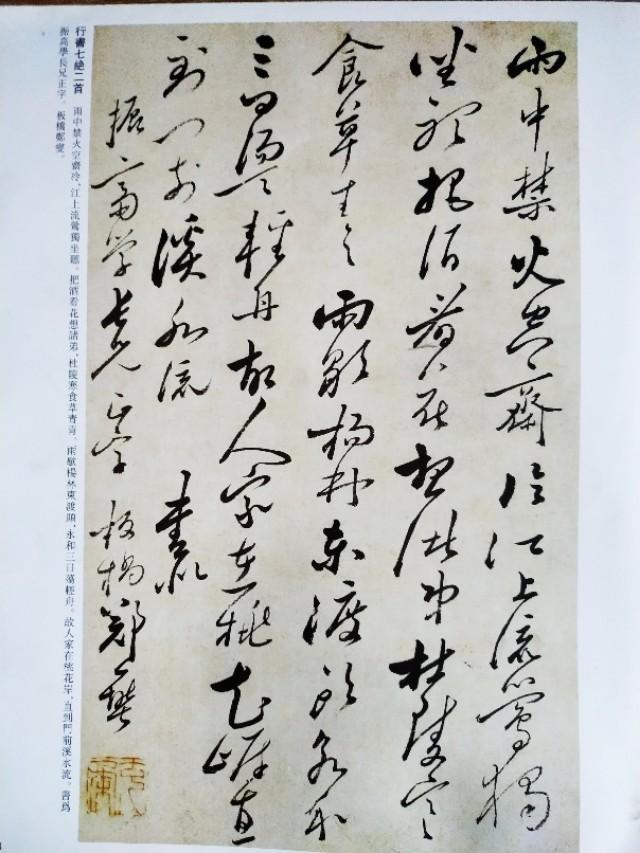 雨中禁火空齋冷江上流鶯獨
坐聽把酒看花想諸弟杜陵寒
食草青青雨歇楊林東渡頭永和
三日蕩輕舟故人家在桃花岸直
到門前溪水流 書爲
振高學長兄正字 板橋鄭燮
行書七絶二首 雨中禁火空齋冷,江上流鶯獨坐聽。把酒看花想諸弟,杜陵寒食草青青。雨歇楊林東渡頭,永和三日蕩輕舟。故人家在桃花岸,直到門前溪水流。書爲
振高學長兄正字。板橋鄭燮。